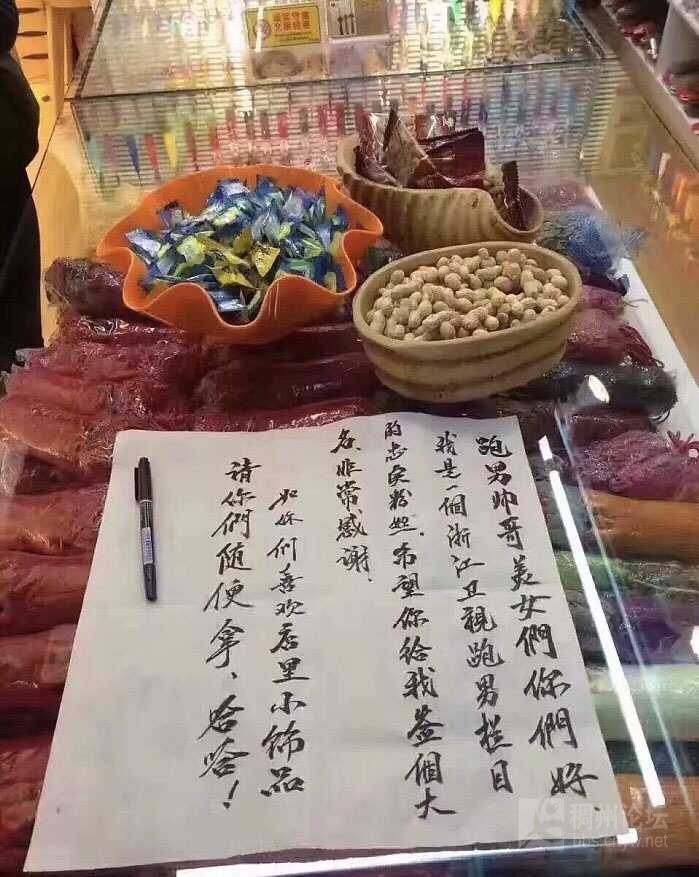 跑男帅哥美女們你們好
我是一個浙江卫視跑男栏目
的忠实粉丝.希望你给我签個大
名非常感谢!
如你们喜欢店里小饰品
请你們随便拿、哈哈!
稠州论坛
bbs.cnyw.net